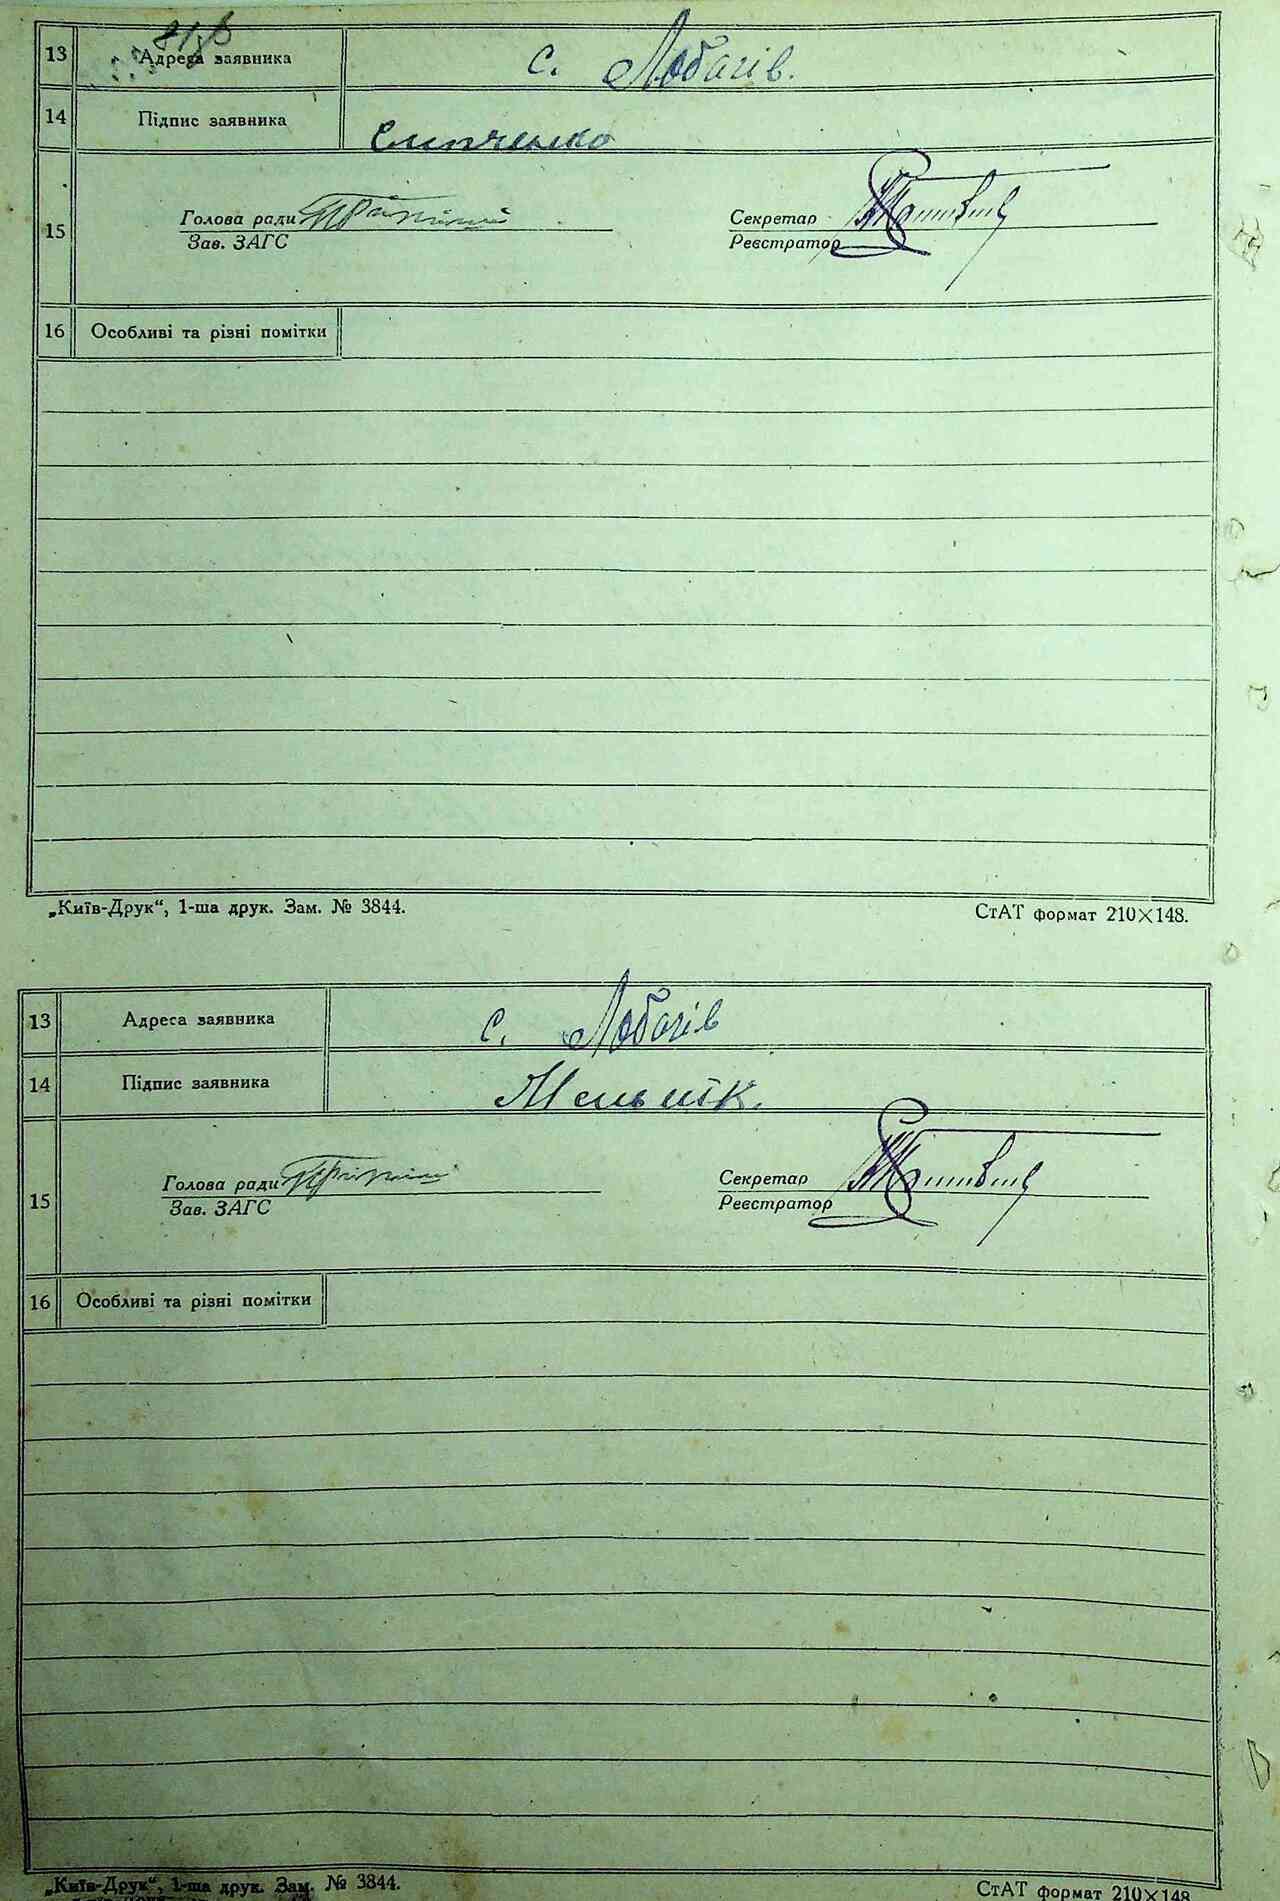 13 Адреса заявника с. Лобачів.
14 Підпис заявника
15 Голова ради Секретар
Зав. ЗАГС Реєстратор
16 Особливі та різні помітки
„Київ-Друк“, 1-ша друк. Зам. № 3844. СтАТ формат 210×148.
13 Адреса заявника с. Лобачів
14 Підпис заявника Мельнік.
15 Голова ради Секретар
Зав. ЗАГС Реєстратор
16 Особливі та різні помітки
„Київ-Друк“, 1-ша друк. Зам. № 3844. СтАТ формат 210×148